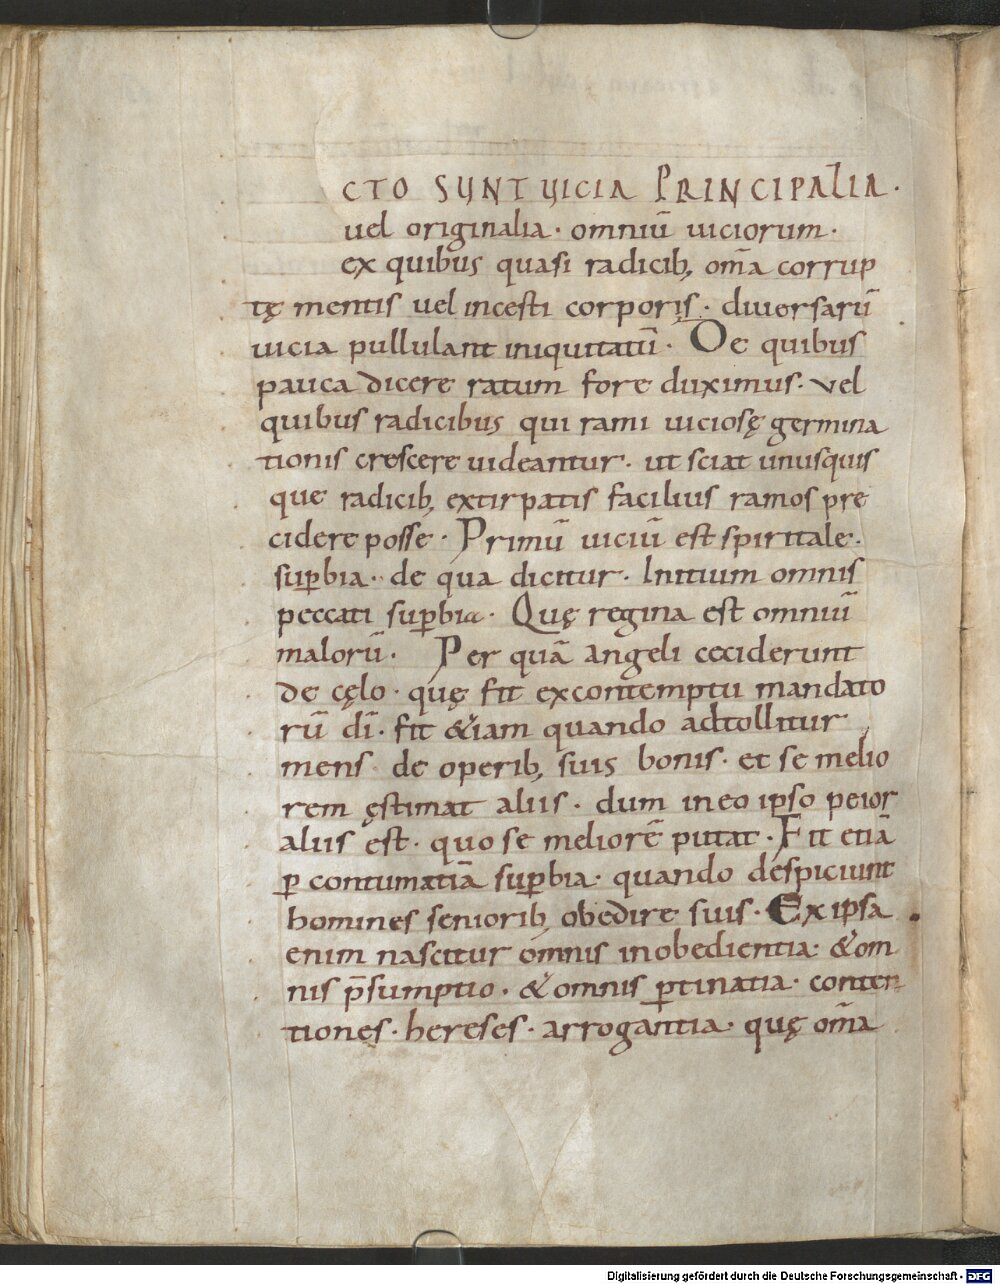 CTO SUNT UICIA PRINCIPALIA ·
uel originalia · omniū uiciorum ·
ex quibus quasi radicib; om̄a corrup
tę mentis uel incesti corporis · diuersarū
uicia pullulant iniquitatū · De quibus
pauca dicere ratum fore duximus · vel
quibus radicibus qui rami uiciosę germina
tionis crescere uideantur · ut sciat unusquis
que radicib; extirpatis facilius ramos pre
cidere posse · Primū uiciū est spiritale ·
suꝑbia · de qua dicitur · Initium omnis
peccati suꝑbia · Quę regina est omniū
malorū · Per quā angeli ceciderunt
de cęlo · quę fit excontemptu mandato
rū dī · fit &iam quando adtollitur
mens de operib; suis bonis · et se melio
rem ęstimat aliis · dum ineo ipso peior
aliis est · quo se meliorē putat · Fit etiā
ꝑ contumatiā suꝑbia · quando despiciunt
homines seniorib; obedire suis · Ex ipsa
enim nascitur omnis inobedientia · &om
nis p̄sumptio · & omnis ꝑtinatia · conten
tiones · hereses · arrogantia · quę om̄a
Digitalisierung gefördert durch die Deutsche Forschungsgemeinschaft - DFG